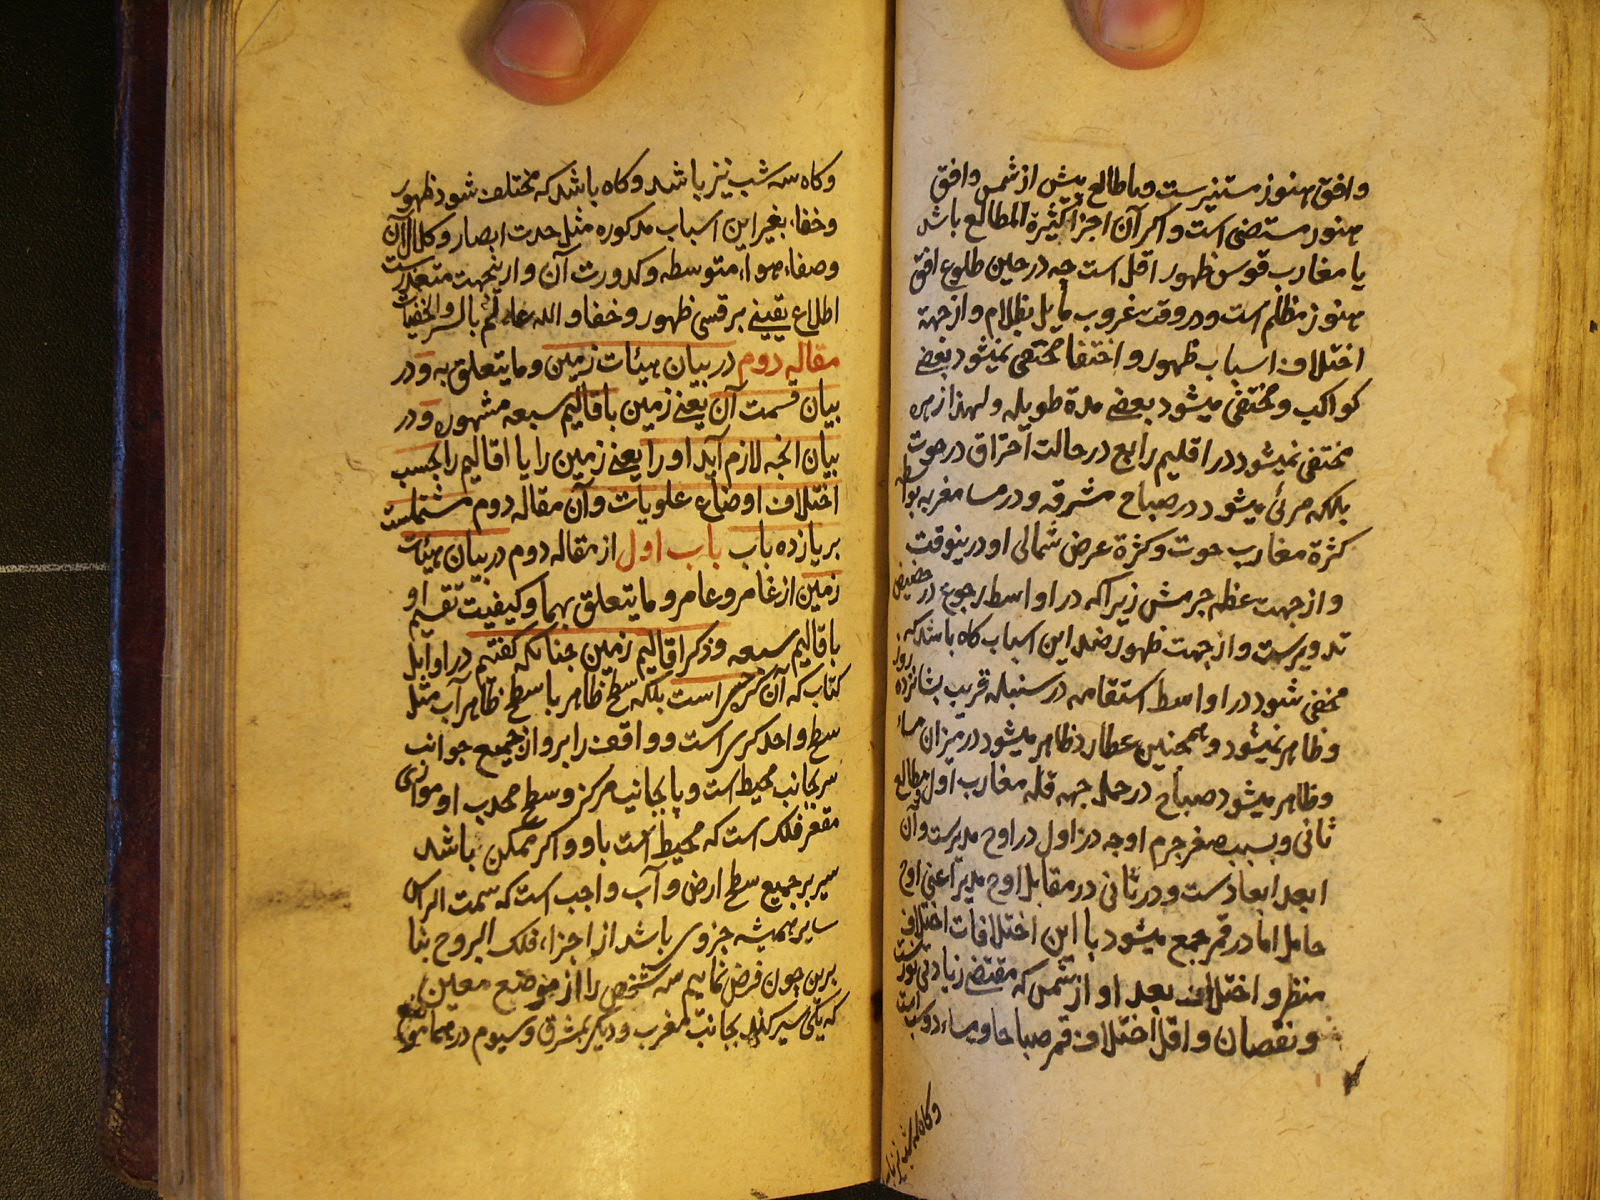 وافق هنوز مستنیرست وبا طالع پیش از شمس وافق
هنوز مستضی است و اکر آن اجزا کثیرة المطالع باشد
یا مغارب قوس ظهور اقل است چه در حین طلوع افق
هنوز مظلم است و در وقت غروب مایل بظلام و از جهة
اختلاف اسباب ظهور و اختفا مختفی نمیشود بعضی
کواکب و مختفی میشود بعضی مدة طویله و لهذا زهره
مختفی نمیشود در اقلیم رابع در حالت احتراق در حوت
بلکه مرئی میشود در صباح مشرقه و در مسا مغربه بواسطه
کثرة مغارب حوت و کثرة عرض شمالی او درینوقت
و از جهت عظم جرمش زیراکه در اواسط رجوع در حضیض
تدویرست و از جهت ظهور ضد این اسباب کاه باشد که
مخفی شود در اواسط استقامه در سنبله قریب بشانزده روز
و ظاهر نمیشود و همچنین عطارد ظاهر میشود در میزان مساء
و ظاهر میشود صباح در حمل جهه قله مغارب اول و مطالع
ثانی و بسبب صغر جرم او چه در اول در اوج مدیرست و آن
ابعد ابعادست و در ثانی در مقابل اوج مدیر اعنی اوج
حامل اما در قمر جمع میشود با این اختلافات اختلاف
منظر و اختلاف بعد او از شمس که مقتضی زیادتی نورست
و نقصان و اقل اختلاف قمر صباحا و مساء دو شب است
وکاه سه شب نیز باشد
وکاه سه شب نیز باشد وکاه باشد که مختلف شود ظهور
و خفاء بغیر این اسباب مذکوره مثل حدت ابصار و کلال آن
و صفاء هواء متوسطه و کدورت آن و ازینجهت متعذرست
اطلاع یقینی بر قسی ظهور و خفا والله عالم بالسر والخفیات
مقاله دوم در بیان هیئات زمین و ما یتعلق به و در
بیان قسمت آن یعنی زمین باقالیم سبعه مشهوره و در
بیان انچه لازم آید او را یعنی زمین را یا اقالیم را بحسب
اختلاف اوضاع علویات و آن مقاله دوم مشتملست
بر یازده باب باب اول از مقاله دوم در بیان هیئات
زمین از غامر و عامر و ما یتعلق بهما و کیفیت تقسیم او
باقالیم سبعه و ذکر اقالیم زمین چنانکه کفتیم در اوایل
کتاب که آن کری حسی است بلکه سطح ظاهر با سطح ظاهر آب مثل
سطح واحد کری است و واقف را برو از جمیع جوانب
سر بجانب محیط است و پا بجانب مرکز و سطح محدب او موازی
مقعر فلک است که محیط است باو و اکر ممکن باشد
سیر بر جمیع سطح ارض و آب واجب است که سمت الراس
سایر همیشه جزوی باشد از اجزاء فلک البروج بنا
برین چون فرض نماییم سه شخص را از موضع معین
که یکی سیر کند بجانب مغرب و دیکر بمشرق و سیوم در همان موضع